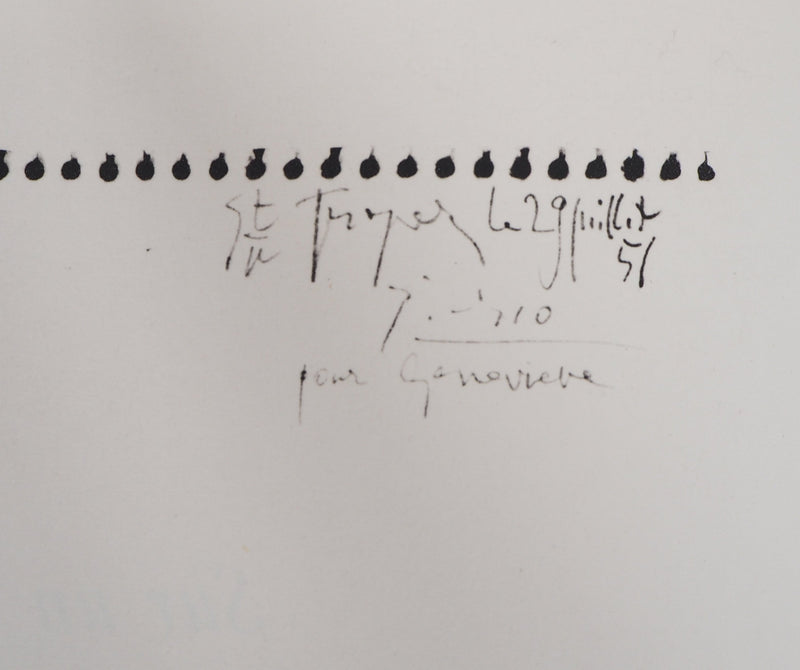 St Tropez le 29 juillet
51
Picasso
pour Genevieve